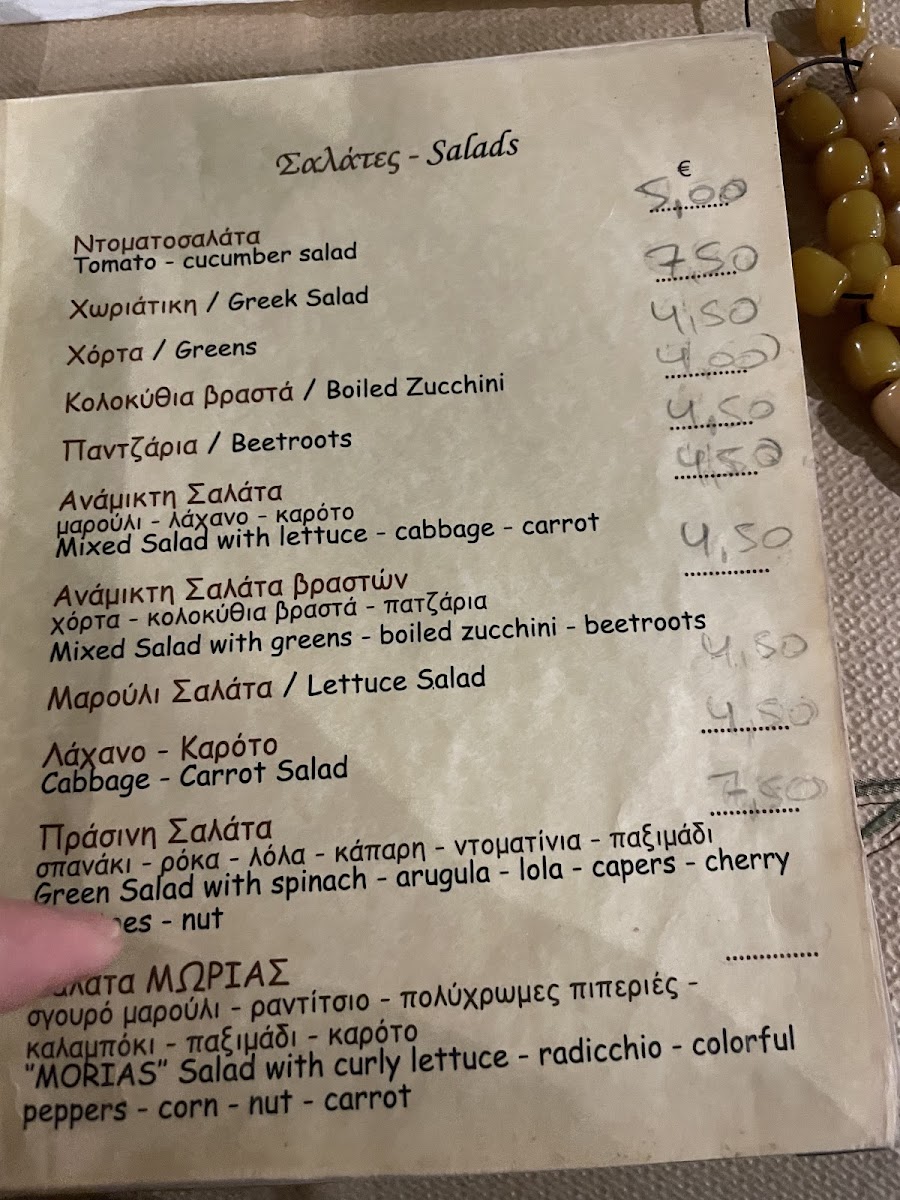 Σαλάτες - Salads
€
5,00
Ντοματοσαλάτα
Tomato - cucumber salad
7,50
Χωριάτικη / Greek Salad
4,50
Χόρτα / Greens
4,00
Κολοκύθια βραστά / Boiled Zucchini
4,50
Παντζάρια / Beetroots
4,50
Ανάμικτη Σαλάτα
μαρούλι - λάχανο - καρότο
Mixed Salad with lettuce - cabbage - carrot
4,50
Ανάμικτη Σαλάτα βραστών
χόρτα - κολοκύθια βραστά - πατζάρια
Mixed Salad with greens - boiled zucchini - beetroots
4,50
Μαρούλι Σαλάτα / Lettuce Salad
4,50
Λάχανο - Καρότο
Cabbage - Carrot Salad
7,50
Πράσινη Σαλάτα
σπανάκι - ρόκα - λόλα - κάπαρη - ντοματίνια - παξιμάδι
Green Salad with spinach - arugula - lola - capers - cherry
- nut
ΜΩΡΙΑΣ
σγουρό μαρούλι - ραντίτσιο - πολύχρωμες πιπεριές -
καλαμπόκι - παξιμάδι - καρότο
"MORIAS" Salad with curly lettuce - radicchio - colorful
peppers - corn - nut - carrot